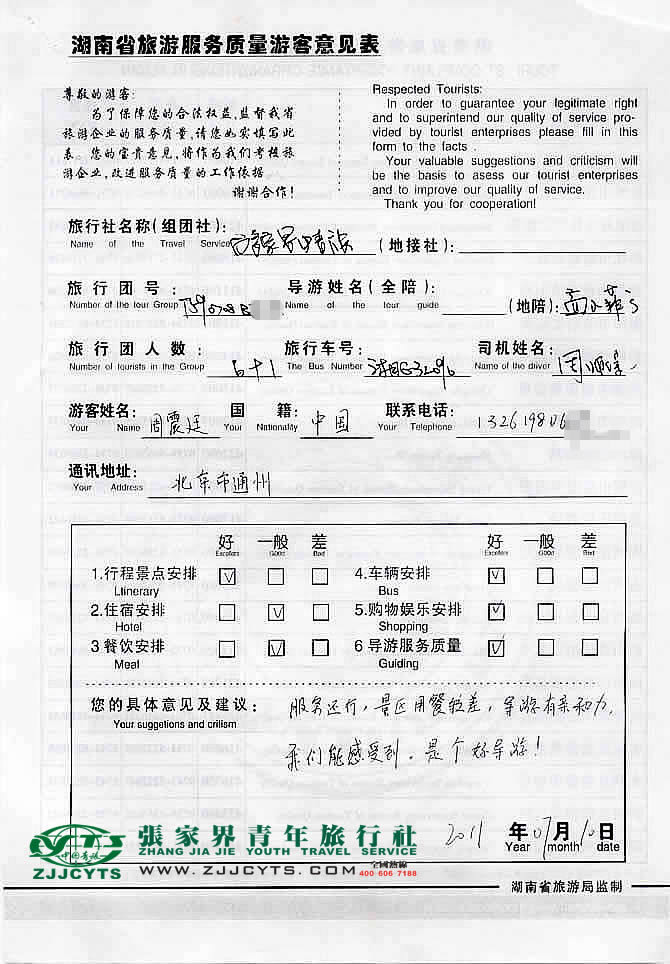 湖南省旅游服务质量游客意见表
尊敬的游客:
为了保障您的合法权益,监督我省
旅游企业的服务质量,请您如实填写此
表。您的宝贵意见,将作为我们考核旅
游企业,改进服务质量的工作依据。
谢谢合作!
Respected Tourists:
In order to guarantee your legitimate right
and to superintend our quality of service pro-
vided by tourist enterprises please fill in this
form to the facts .
Your valuable suggestions and criticism will
be the basis to asess our tourist enterprises
and to improve our quality of service.
Thank you for cooperation!
旅行社名称(组团社): (地接社):
Name of the Travel Service
旅行团号: 导游姓名(全陪) : (地陪):
Number of the tour Group Name of the tour guide
旅行团人数: 6+1 旅行车号: 司机姓名:
Number of tourists in the Group The Bus Number Name of the diver
游客姓名: 周震廷 国籍: 中国 联系电话: 132619806
Your Name Your Nationality Your Telephone
通讯地址: 北京市通州
Your Address
好 一般 差 好 一般 差
Excellent Good Bad Excellent Good Bad
1.行程景点安排 4.车辆安排
Ltinerary Bus
2.住宿安排 5.购物娱乐安排
Hotel Shopping
3 餐饮安排 6 导游服务质量
Meal Guiding
您的具体意见及建议: 服务还行,景区用餐较差,导游有亲和力,
Your suggetions and crilism
我们能感受到。是个好导游!
2011 年 07 月 10 日
Year month date
張家界青年旅行社
ZHANG JIA JIE YOUTH TRAVEL SERVICE
中国青旅
ZJJCYTS
WWW.ZJJCYTS.COM 全國熱線
400 606 7188
湖南省旅游局监制